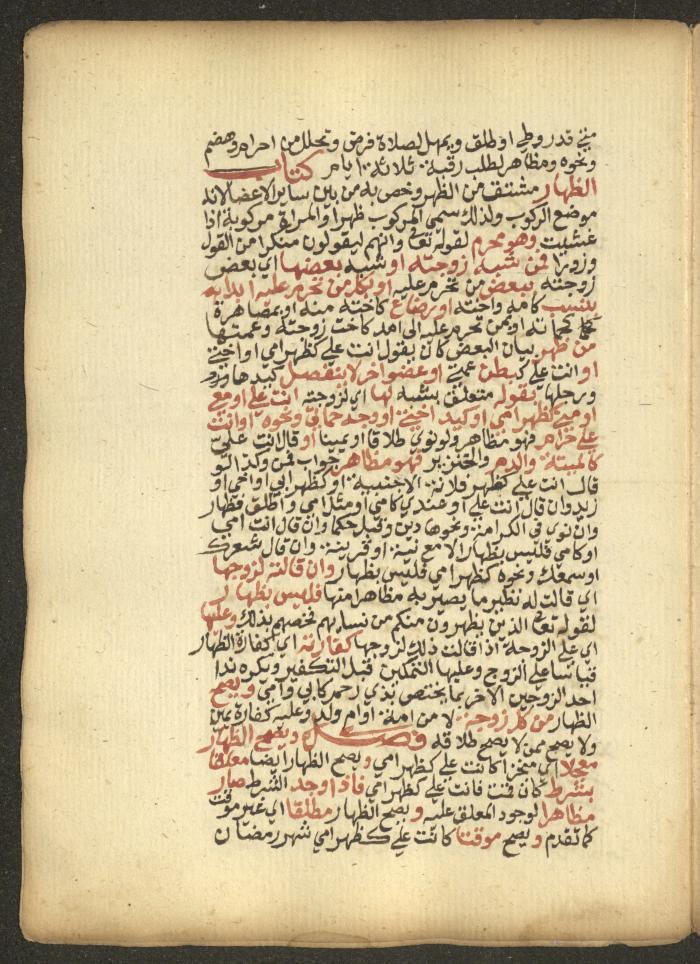 متى قدر وطي او طلق ويمهل لصلاة فرض وتحلل من احرام وهضم
ونحوه ومظاهر لطلب رقبة ثلاثة ايام كتاب
الظهار مشتق من الظهر وخص به من بين ساير الاعضا لانه
موضع الركوب ولذلك سمي المركوب ظهرا والمراة مركوبة اذا
غشيت وهو محرم لقوله تعالى وانهم ليقولون منكرا من القول
وزورا فمن شبه زوجته او شبه بعضها اي بعض
زوجته ببعض من تحرم عليه او بكل من تحرم عليه ابدا به
بنسب كامه واخته او رضاع كاخته منه او بمصاهرة
كحماته او بمن تحرم عليه الى امد كاخت زوجته وعمتها
من ظهر بيان البعض كان يقول انت علي كظهر امي او اختي
او انت علي كبطن عمتي او عضو اخر لا ينفصل كيدها
ورجلها بقوله متعلق بشبه لها اي لزوجته انت علي او معي
او مني كظهر امي او كيد اختي او وجه حماتي ونحوه او انت
علي حرام فهو مظاهر ولو نوى طلاقا او يمينا او قال انت علي
كالميتة والدم والخنزير فهو مظاهر جواب فمن وكذا لو
قال انت علي كظهر فلانة الاجنبية او كظهر ابي او اخي او
زيد وان قال انت علي او عندي كامي او مثل امي واطلق فظهار
وان نوى في الكرامة ونحوها دين وقبل حكما وان قال انت امي
او كامي فليس بظهار الا مع نية او قرينة وان قال شعرك
او سمعك ونحوه كظهر امي فليس بظهار وان قالته لزوجها
اي قالت له نظير ما يصير به مظاهرا منها فليس بظهار
لقوله تعالى الذين يظهرون منكم من نسائهم فخصهم بذلك وعليها
اي على الزوجة اذا قالت ذلك لزوجها كفارته اي كفارة الظهار
قياسا على الزوج وعليها التمكين قبل التكفير ويكره ندا
احد الزوجين الاخر بما يختص بذي رحم كابي وامي ويصح
الظهار من كل زوجة لا من امة او ام ولد وعليه كفارة يمين
ولا يصح ممن لا يصح طلاقه فصل ويصح الظهار
معجلا اي منجزا كانت علي كظهر امي ويصح الظهار ايضا معلقا
بشرط كان قمت فانت علي كظهر امي فاذا وجد الشرط صار
مظاهرا لوجود المعلق عليه ويصح الظهار مطلقا اي غير موقت
كما تقدم ويصح موقتا كانت علي كظهر امي شهر رمضان